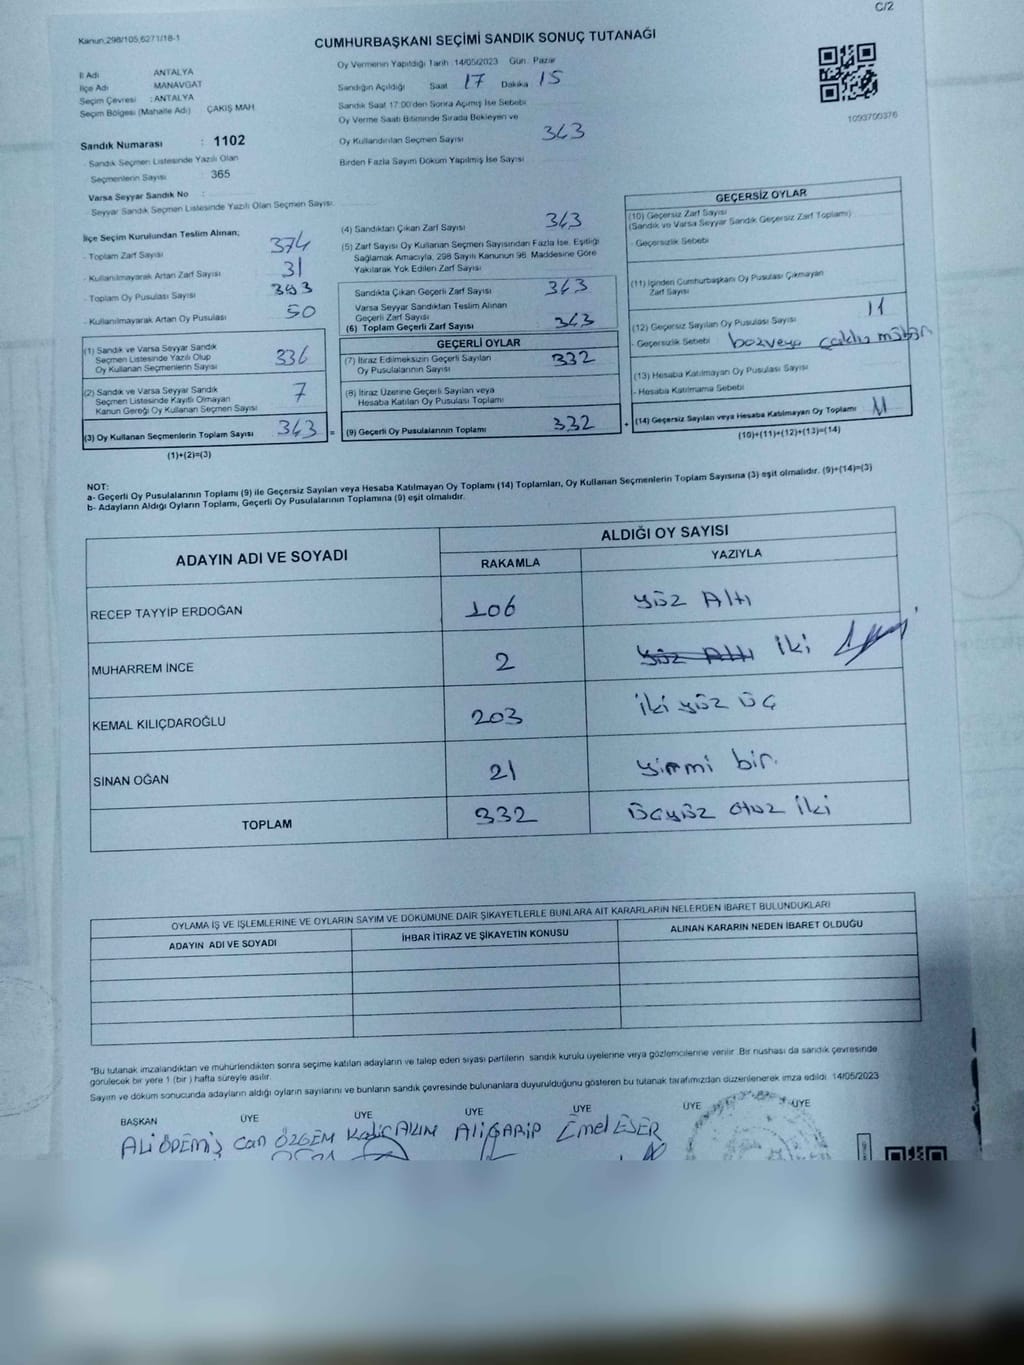 C/2
Kanun:298/105,6271/18-1
CUMHURBAŞKANI SEÇİMİ SANDIK SONUÇ TUTANAĞI
İl Adı ANTALYA
İlçe Adı MANAVGAT
Seçim Çevresi : ANTALYA
Seçim Bölgesi (Mahalle Adı) ÇAKIŞ MAH
Sandık Numarası : 1102
- Sandık Seçmen Listesinde Yazılı Olan
Seçmenlerin Sayısı 365
Varsa Seyyar Sandık No :
- Seyyar Sandık Seçmen Listesinde Yazılı Olan Seçmen Sayısı:
Oy Vermenin Yapıldığı Tarih :14/05/2023 Gün: Pazar
Sandığın Açıldığı Saat 17 Dakika 15
Sandık Saat 17:00'den Sonra Açılmış İse Sebebi
Oy Verme Saati Bitiminde Sırada Bekleyen ve
Oy Kullandırılan Seçmen Sayısı 343
Birden Fazla Sayım Döküm Yapılmış İse Sayısı
1093700376
İlçe Seçim Kurulundan Teslim Alınan;
- Toplam Zarf Sayısı 374
- Kullanılmayarak Artan Zarf Sayısı 31
- Toplam Oy Pusulası Sayısı 393
- Kullanılmayarak Artan Oy Pusulası 50
(1) Sandık ve Varsa Seyyar Sandık
Seçmen Listesinde Yazılı Olup
Oy Kullanan Seçmenlerin Sayısı 336
(2) Sandık ve Varsa Seyyar Sandık
Seçmen Listesinde Kayıtlı Olmayan
Kanun Gereği Oy Kullanan Seçmen Sayısı 7
(3) Oy Kullanan Seçmenlerin Toplam Sayısı 343 =
(1)+(2)=(3)
(4) Sandıktan Çıkan Zarf Sayısı 343
(5) Zarf Sayısı Oy Kullanan Seçmen Sayısından Fazla İse, Eşitliği
Sağlamak Amacıyla, 298 Sayılı Kanunun 98. Maddesine Göre
Yakılarak Yok Edilen Zarf Sayısı
Sandıkta Çıkan Geçerli Zarf Sayısı 343
Varsa Seyyar Sandıktan Teslim Alınan
Geçerli Zarf Sayısı
(6) Toplam Geçerli Zarf Sayısı 343
GEÇERLİ OYLAR
(7) İtiraz Edilmeksizin Geçerli Sayılan
Oy Pusulalarının Sayısı 332
(8) İtiraz Üzerine Geçerli Sayılan veya
Hesaba Katılan Oy Pusulası Toplamı
(9) Geçerli Oy Pusulalarının Toplamı 332 +
GEÇERSİZ OYLAR
(10) Geçersiz Zarf Sayısı
(Sandık ve Varsa Seyyar Sandık Geçersiz Zarf Toplamı)
- Geçersizlik Sebebi
(11) İçinden Cumhurbaşkanı Oy Pusulası Çıkmayan
Zarf Sayısı
(12) Geçersiz Sayılan Oy Pusulası Sayısı 11
- Geçersizlik Sebebi
(13) Hesaba Katılmayan Oy Pusulası Sayısı
- Hesaba Katılmama Sebebi
(14) Geçersiz Sayılan veya Hesaba Katılmayan Oy Toplamı 11
(10)+(11)+(12)+(13)=(14)
NOT:
a- Geçerli Oy Pusulalarının Toplamı (9) ile Geçersiz Sayılan veya Hesaba Katılmayan Oy Toplamı (14) Toplamları, Oy Kullanan Seçmenlerin Toplam Sayısına (3) eşit olmalıdır. (9)+(14)=(3)
b- Adayların Aldığı Oyların Toplamı, Geçerli Oy Pusulalarının Toplamına (9) eşit olmalıdır.
ADAYIN ADI VE SOYADI
ALDIĞI OY SAYISI
RAKAMLA YAZIYLA
RECEP TAYYİP ERDOĞAN 106 yüz Altı
MUHARREM İNCE 2 yüz Altı iki
KEMAL KILIÇDAROĞLU 203 iki yüz üç
SİNAN OĞAN 21 yirmi bir.
TOPLAM 332 üçyüz otuz iki
OYLAMA İŞ VE İŞLEMLERİNE VE OYLARIN SAYIM VE DÖKÜMÜNE DAİR ŞİKAYETLERLE BUNLARA AİT KARARLARIN NELERDEN İBARET BULUNDUKLARI
ADAYIN ADI VE SOYADI İHBAR İTİRAZ VE ŞİKAYETİN KONUSU ALINAN KARARIN NEDEN İBARET OLDUĞU
"Bu tutanak imzalandıktan ve mühürlendikten sonra seçime katılan adayların ve talep eden siyasi partilerin sandık kurulu üyelerine veya gözlemcilerine verilir. Bir nüshası da sandık çevresinde
görülecek bir yere 1 (bir ) hafta süreyle asılır.
Sayım ve döküm sonucunda adayların aldığı oyların sayılarını ve bunların sandık çevresinde bulunanlara duyurulduğunu gösteren bu tutanak tarafımızdan düzenlenerek imza edildi. 14/05/2023
BAŞKAN ÜYE ÜYE ÜYE ÜYE ÜYE ÜYE
ALİ ÖDEMİŞ Can ÖZGEM Kadir AKIN ALİ GARİP Emel ESER